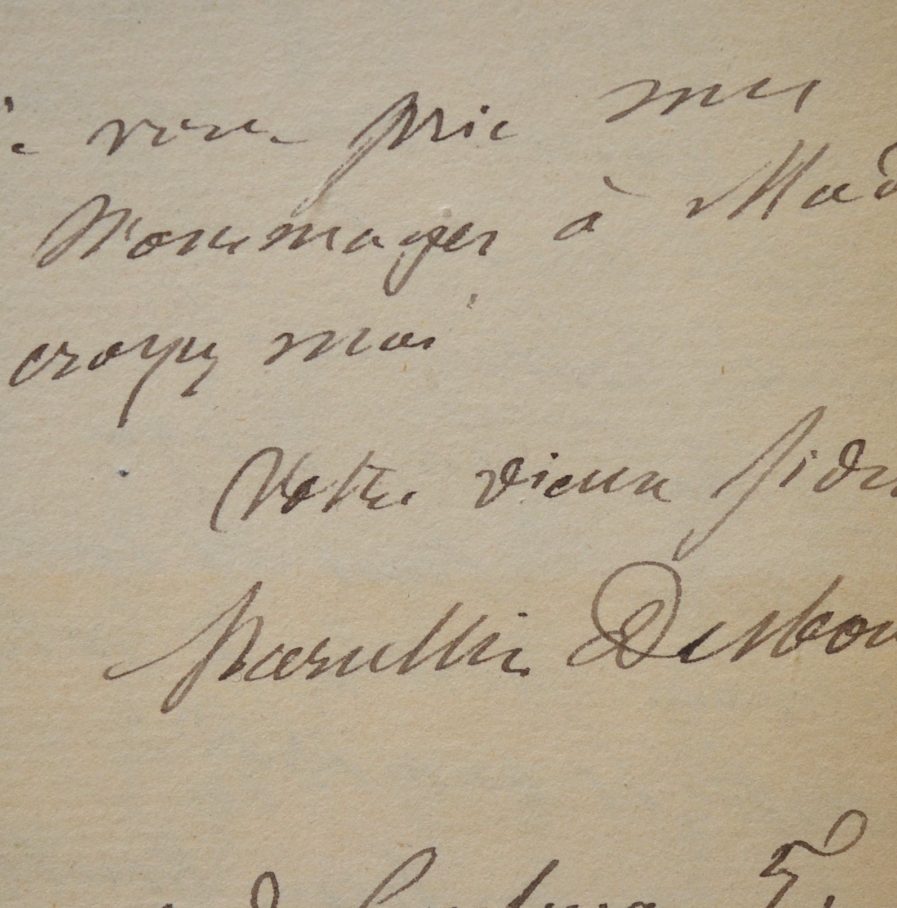 vous prie mes
Hommages à Mad
croyez moi
Votre vieux fidè
Marcellin Desbou